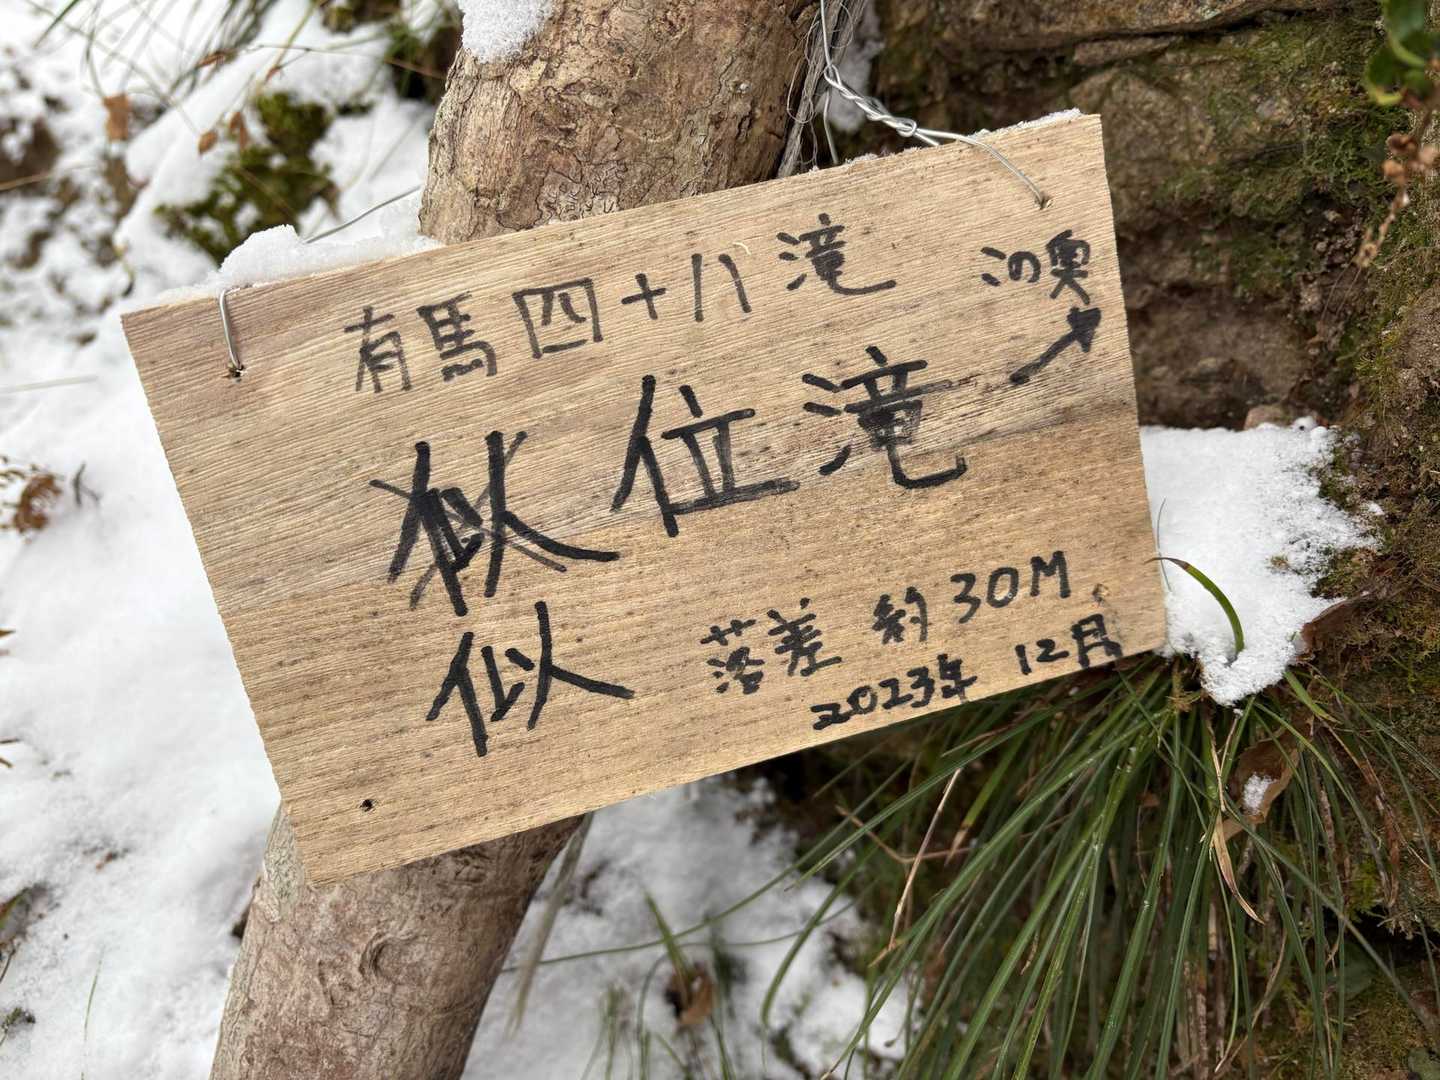 有馬四十八滝
この奥
似位滝
似
落差 約30M
2023年 12月